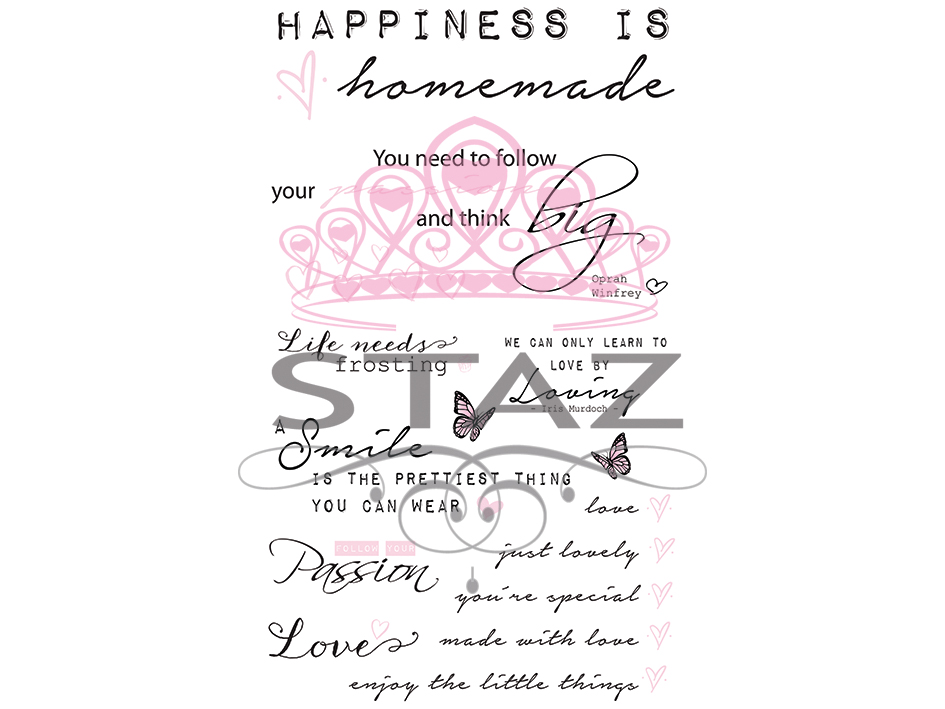 HAPPINESS IS
homemade
You need to follow
your passion
and think big
Oprah
Winfrey
Life needs
frosting
WE CAN ONLY LEARN TO
LOVE BY
Loving
- Iris Murdoch -
STAZ
A Smile
IS THE PRETTIEST THING
YOU CAN WEAR
love
FOLLOW YOUR
Passion
just lovely
you're special
Love
made with love
enjoy the little things